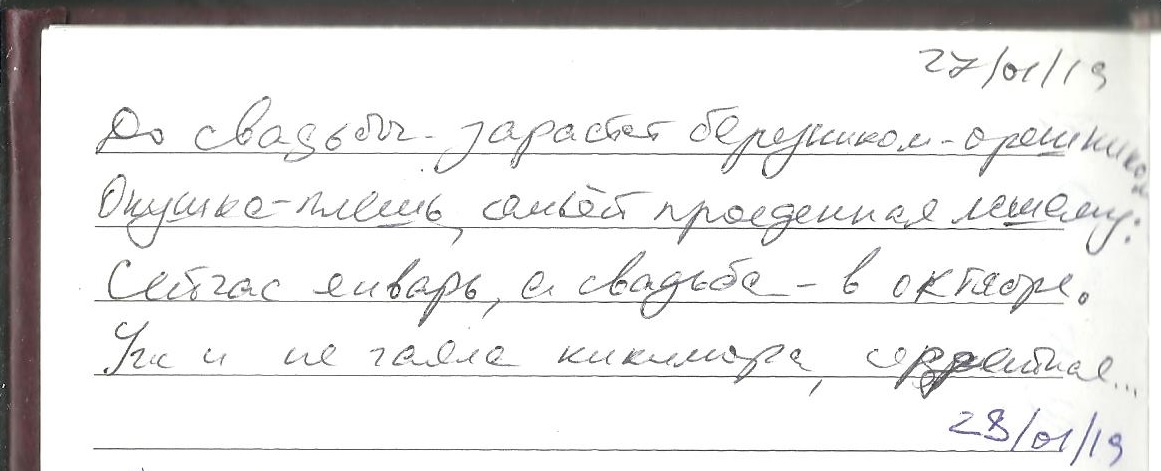 27/01/19
До свадьбы - зарастёт березником-орешником
Опушка-плешь, самъей проеденная лешему:
Сейчас январь, а свадьба - в октябре.
Уж и не чаяла кикимора, сердешная...
28/01/19